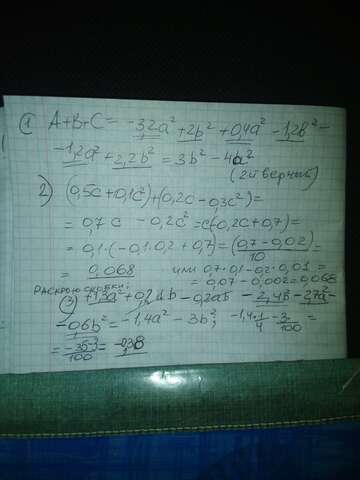 ① A+B+C = -3,2a² + 2b² + 0,4a² - 1,2b² -
-1,2a² + 2,2b² = 3b² - 4a²
(2й верный)
2) (0,5c + 0,1c²) + (0,2c - 0,3c²) =
= 0,7c - 0,2c² = c(-0,2c + 0,7) =
= 0,1·(-0,1·0,2 + 0,7) = (0,7 - 0,02)/10 =
= 0,068 или 0,7·0,1 - 0,2·0,01 =
= 0,07 - 0,002 = 0,068
РАСКРОЮ СКОБКИ:
③ +1,3a² + 0,2ab - 0,2ab - 2,4b² - 2,7a² -
-0,6b² = -1,4a² - 3b²; -1,4·1/4 - 3/100 =
= -35-3/100 = -0,38